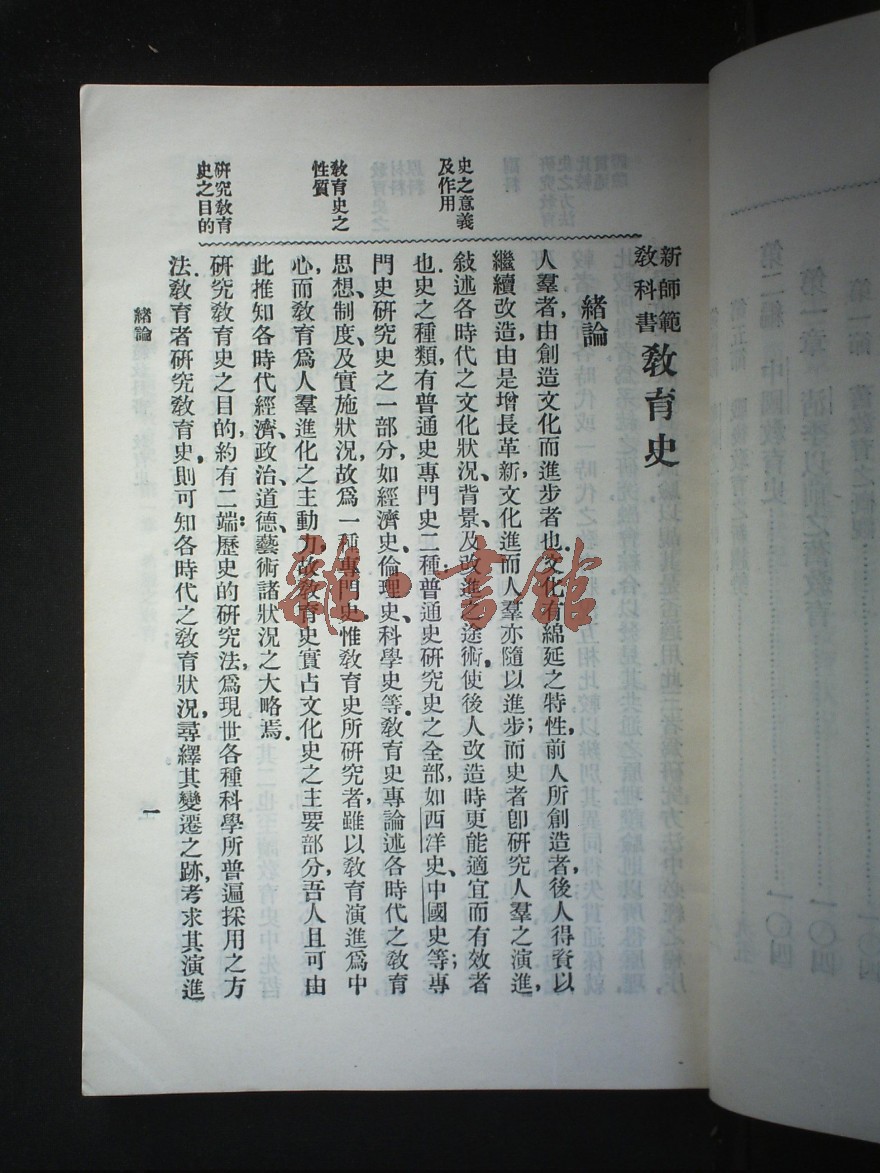 新師範
教科書
教育史
緒論
人羣者，由創造文化而進步者也。文化有綿延之特性，前人所創造者，後人得資以
繼續改造，由是增長革新，文化進而人羣亦隨以進步；而史者卽研究人羣之演進，
敍述各時代之文化狀況、背景、及改進之途術，使後人改造時更能適宜而有效者
也。史之種類，有普通史專門史二種：普通史研究史之全部，如西洋史、中國史等；專
門史研究史之一部分，如經濟史、倫理史、科學史等。教育史專論述各時代之教育
思想、制度、及實施狀況，故爲一種專門史。惟教育史所研究者，雖以教育演進爲中
心，而教育爲人羣進化之主動力，故教育史實占文化史之主要部分，吾人且可由
此推知各時代經濟、政治、道德、藝術諸狀況之大略焉。
研究教育史之目的，約有二端：歷史的研究法，爲現世各種科學所普遍採用之方
法，教育者研究教育史，則可知各時代之教育狀況，尋繹其變遷之跡，考求其演進
史之意義
及作用
教育史之
性質
研究教育
史之目的
緒論
一
雜·書館
第二編 中國教育史
一〇四
第一章
一〇四